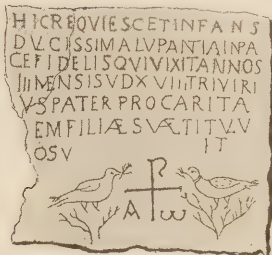 HIC REQVIESCET INFANS
DVLCISSIMA LVPANTIA INPA
CE FIDELIS QVI VIXIT ANNOS
III MENSIS V DX VIIII TRIVIRI
VS PATER PRO CARITA
EM FILIÆ SVÆ TITVLV
OSV IT
A ω